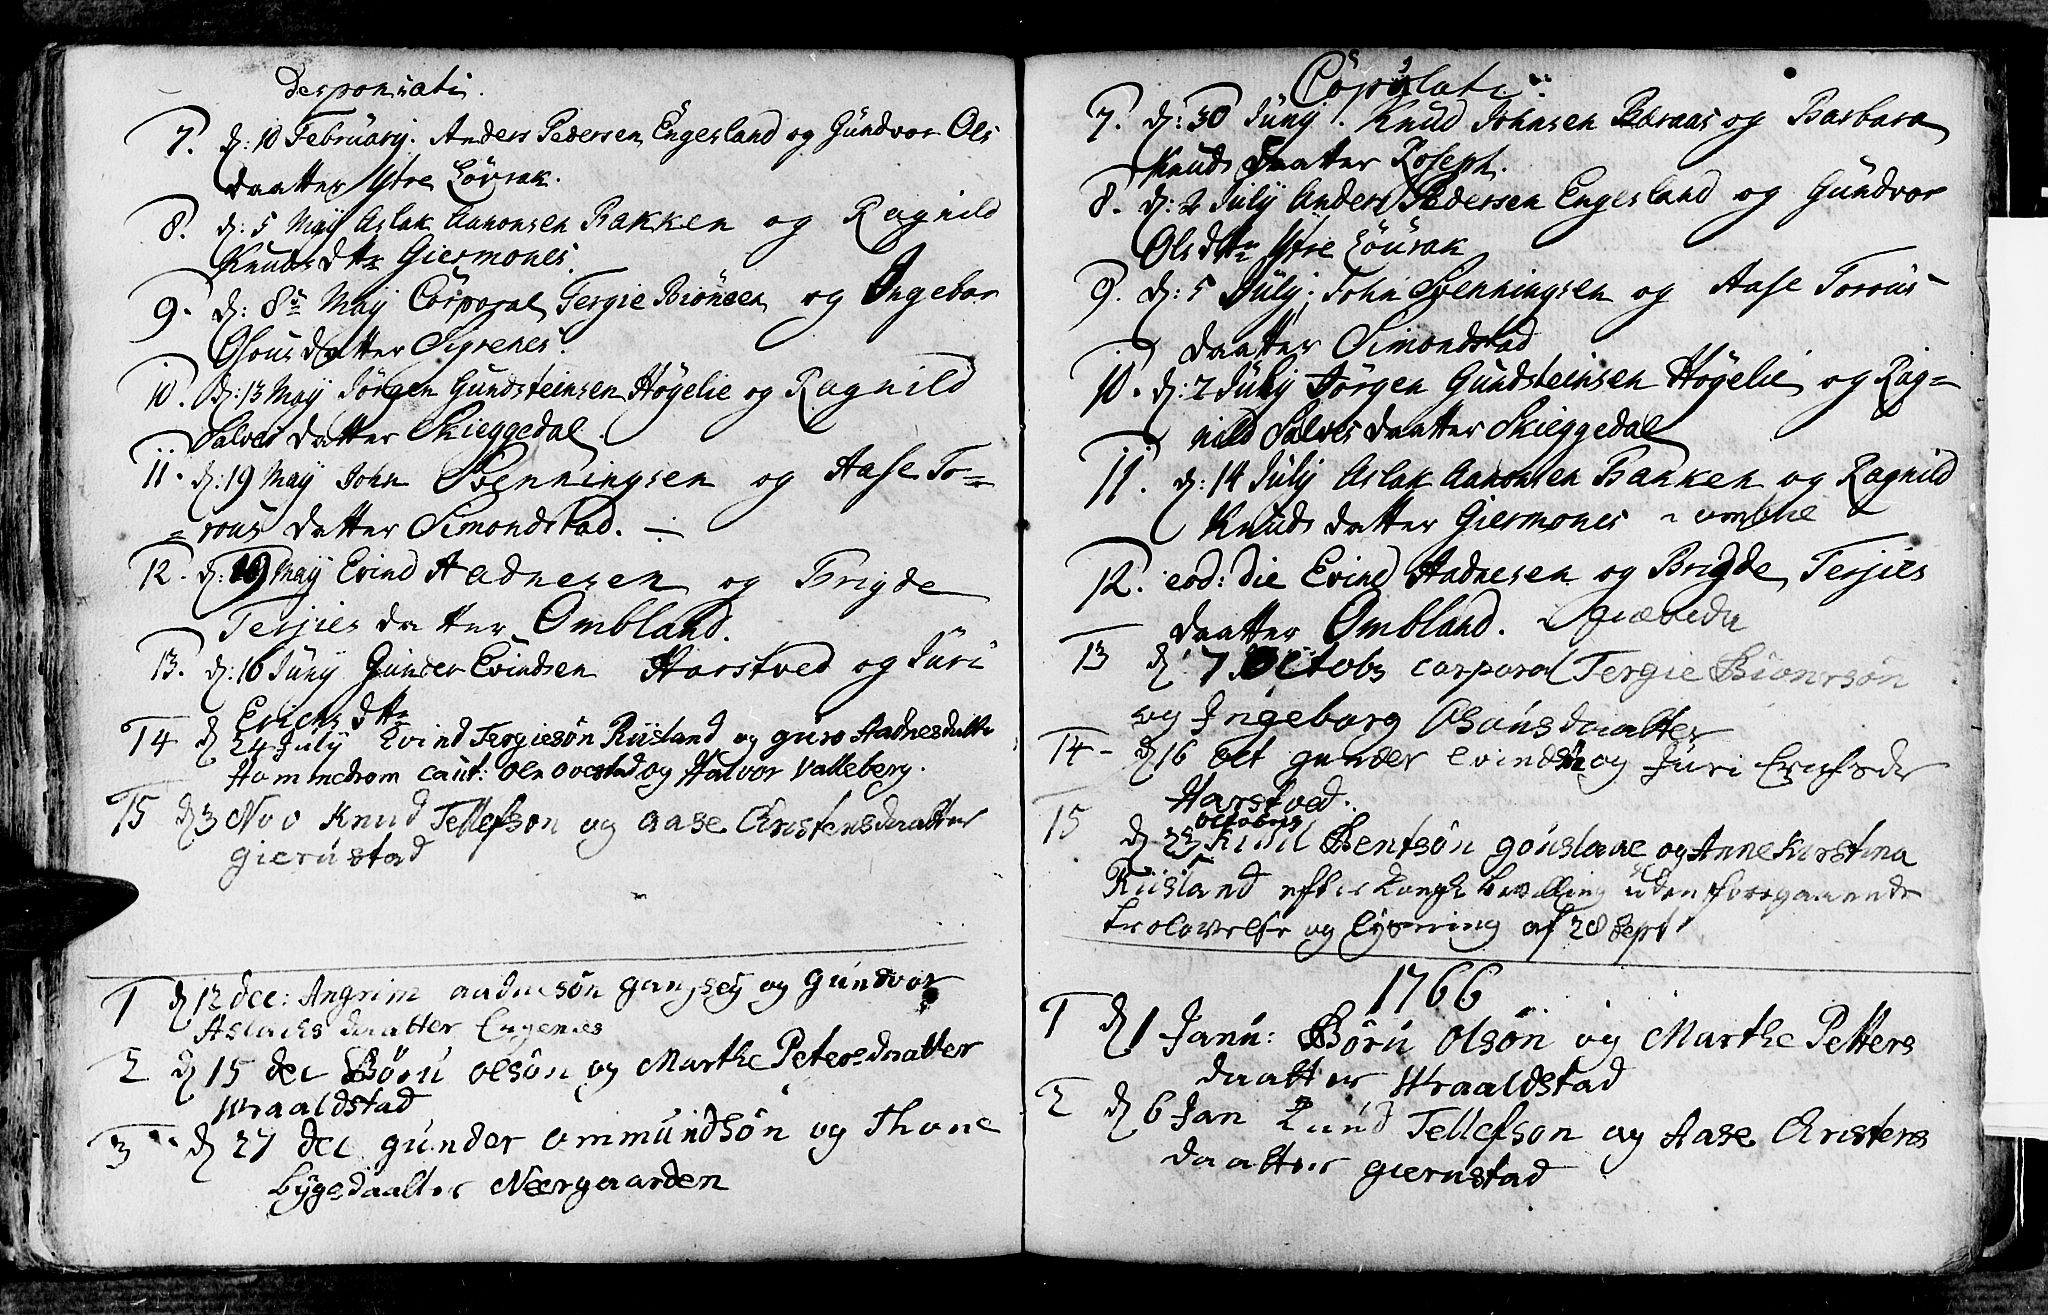 Desponsati.
7. d: 10 Februarij. Anders Pedersen Engesland og Gundvor Ols
daatter Ytre Løvrak.
8. d: 5 Maij Aslak Aanonsen Bakken og Ragnild
Knuds dtr Giermones.
9. d: 8de Maij Corporal Tergie Biönsen og Ingebor
Osous datter Sigenes.
10. d: 13 Maij Jörgen Gundsteinsen Högelie og Ragnild
Salves datter Skieggedal.
11. d: 19 Maij John Svenningsen og Aase To=
=rous datter Simondstad. ÷
12. d: 19 Maij Evind Aadnesen og Brigde
Terjies datter Ombland.
13. d: 16 Junij Gunder Evindsen Harstved og Juri
Erichs dtr
14 d 24 July Evind Tergiesön Riisland og guro Aadnesdatter
Hommedrom caut: Ole ovestad og Halvor Valleberg.
15 d 3 Nov Knud Tellefson og Aase Christensdaatter
gierustad
1 d 12 dec: Angrim aadnesön gangsey og Gundvor
Aslachs daatter Engenes
2 d 15 dec Böru olsön og Marthe Petersdaatter
Wraaldstad
3 d 27 dec gunder ommundsön og Thone
Lygedaatter Neergaarden
Copulati
7. d: 30 Junij. Knud JohnsenRæraas og Barbara
Knuds daatter Roseph.
8. d: 2 Julij Anders Pedersen Engesland og Gundvor
Olsdtr Ytre Löurak
9. d: 5 Julij. John Svenningsen og Aase Torous
daatter Simondstad
10. d: 2 Julij Jörgen Gundsteinsen Högelie og Rag=
nild Salves daatter Skieggedal
11. d: 14 Julij Aslak Aanonsen Bakken og Ragnild
Knuds datter Giermones i omblie
12. eod: die Evind Aadnesen og Brigde Terjies
daatter Ombland. i
13 d 7 Octobr corporal Tergie Bionersön
og Ingeborg Osousdaatter
14 - d 16 oct gunder Evindsön og Juri Erichsdr
Harstved.
octobris
15 d 23 Knud Bentsön gouslaae og Anne Kirstina
Riisland efter kongl bevilling uden foregaaende
trolovelse og lysning af 28 Sept
1766
1 d 1 Janu: Böru Olsön og Marthe Petters
daatter Wraaldstad
2 d 6 Jan Knud Tellefson og Aase Christens
daatter gierustad